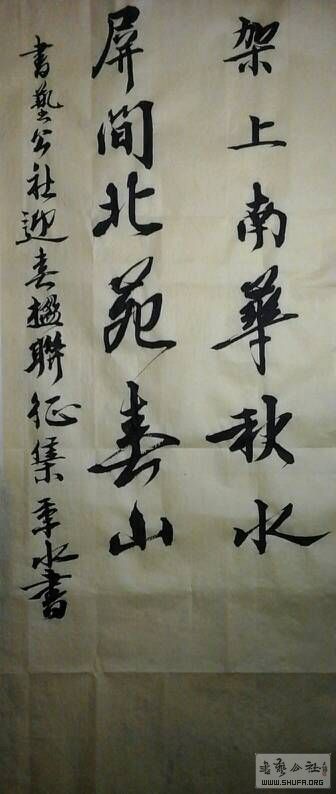 架上南華秋水
屏間北苑春山
書藝公社迎春楹聯征集季水書
書藝公社
WWW.SHUFA.ORG